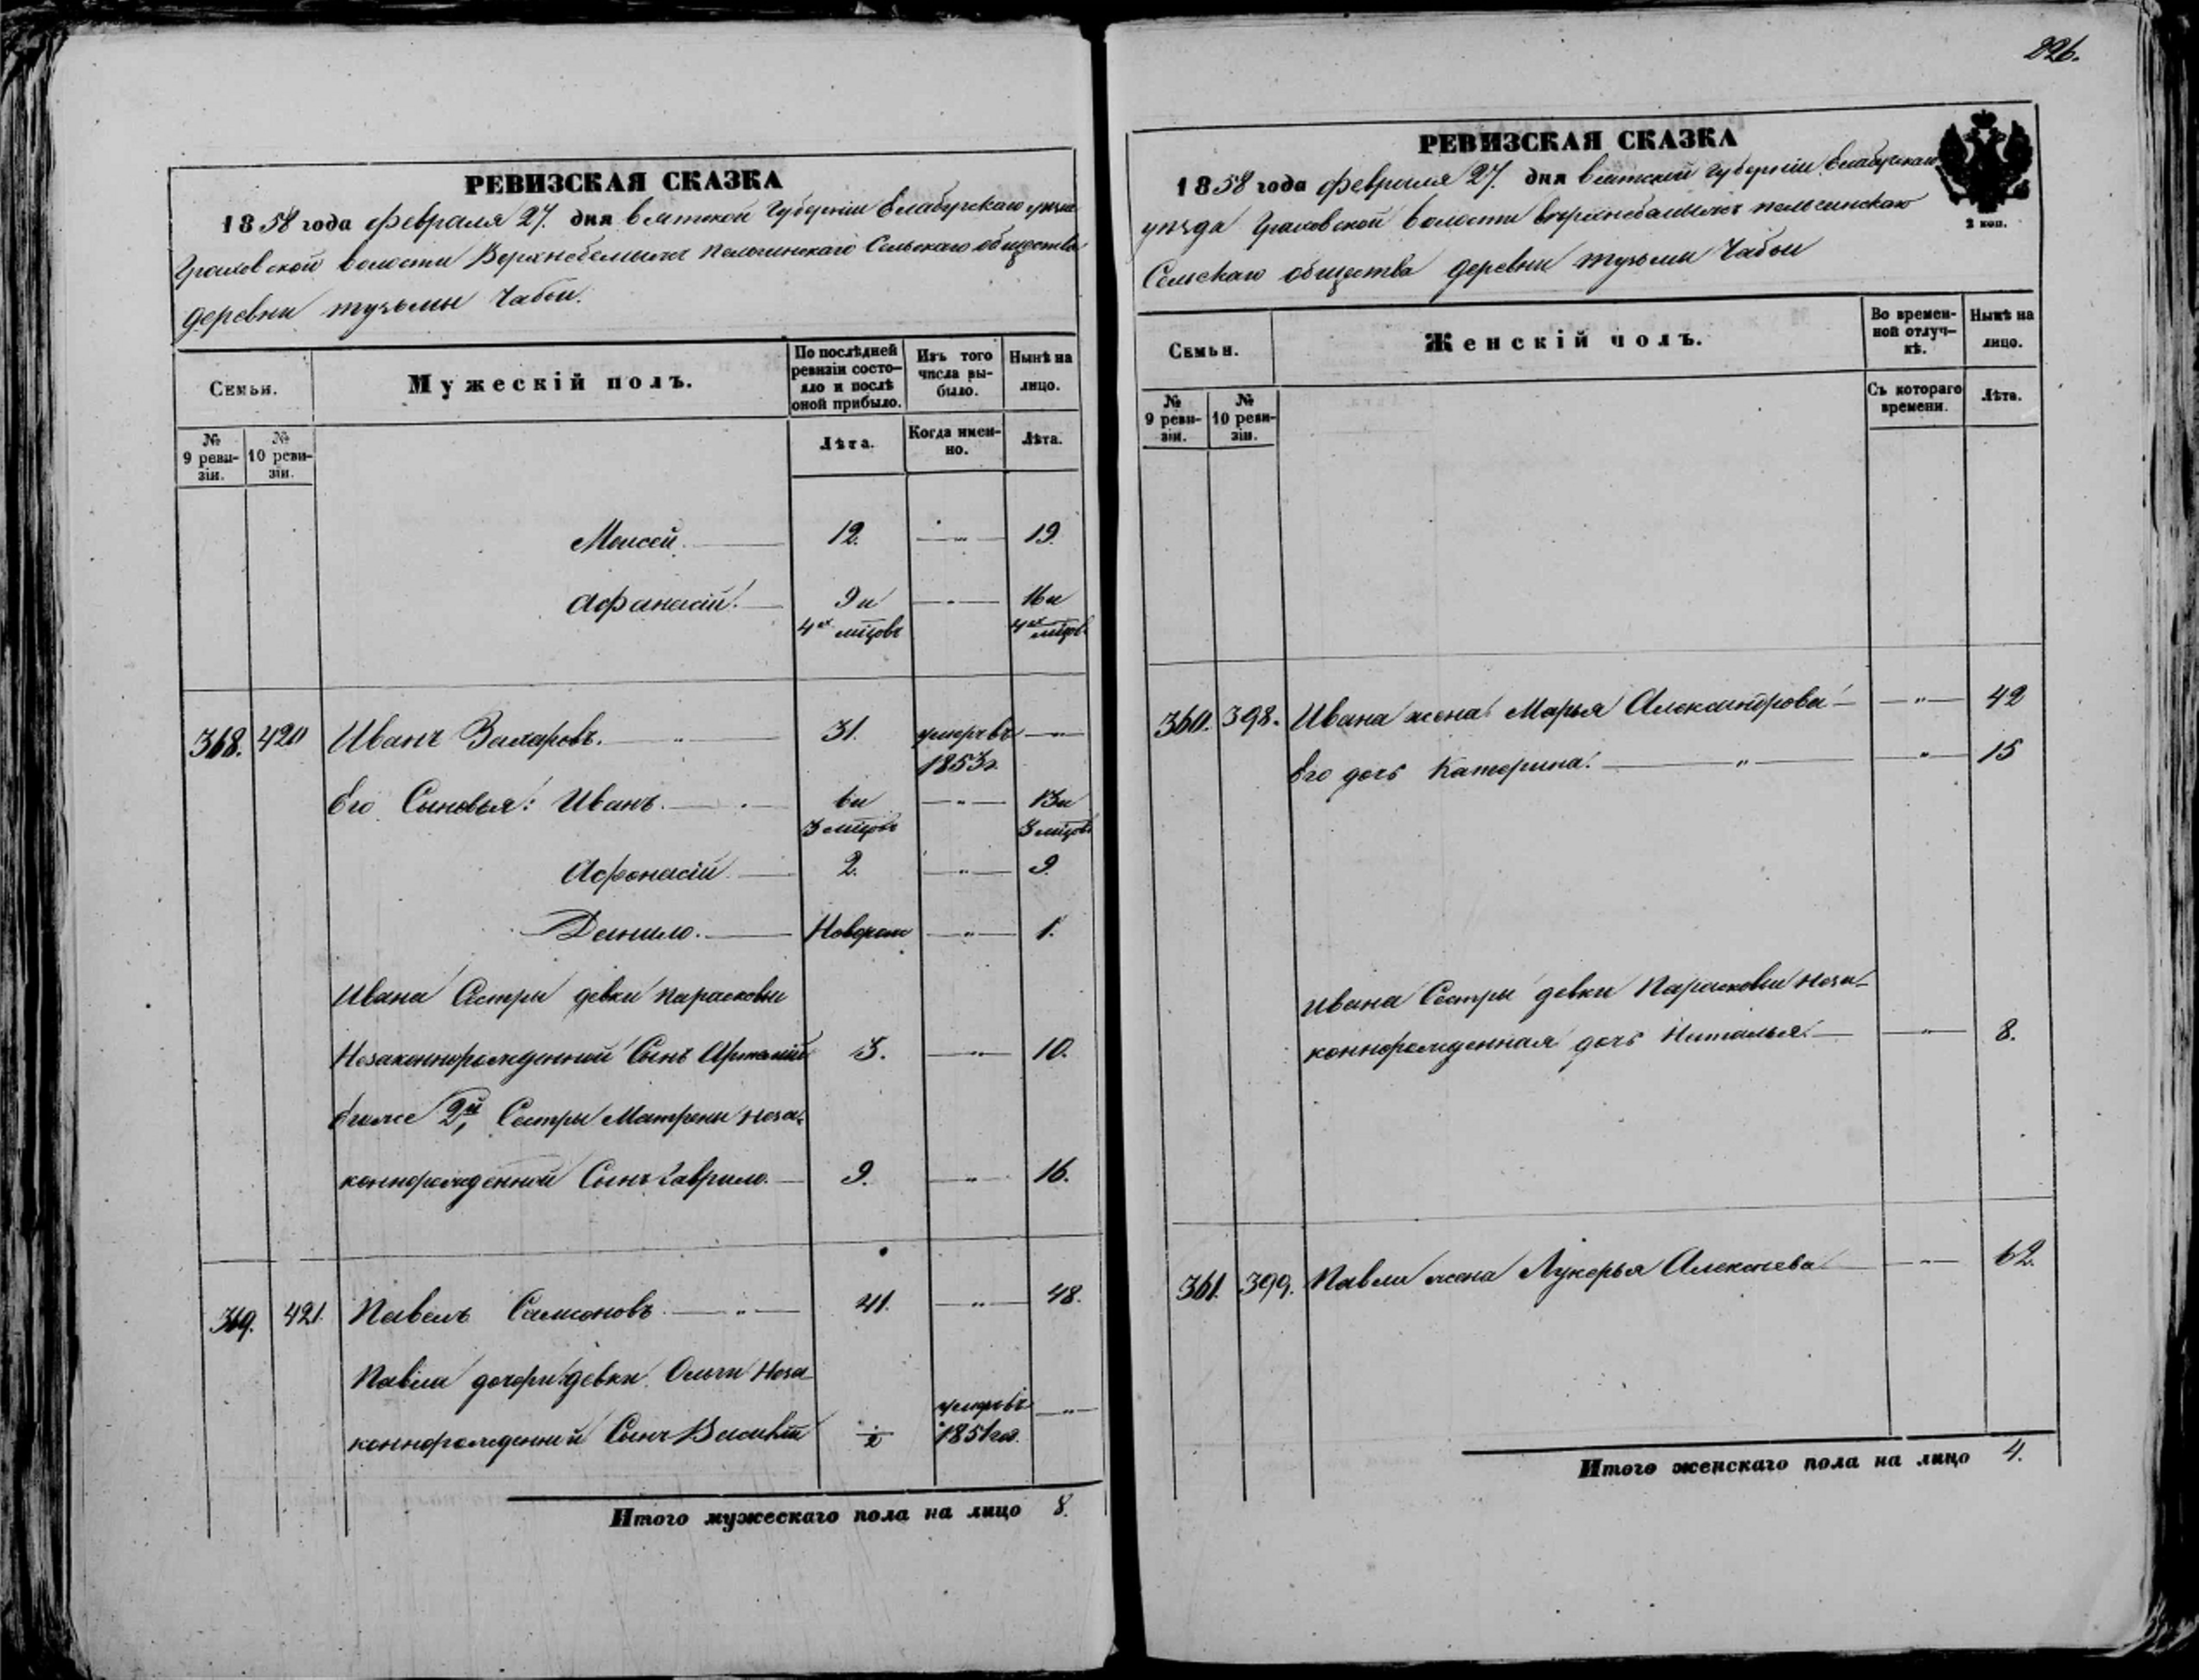 РЕВИЗСКАЯ СКАЗКА
1858 года февраля 27. дня Вятской Губернии Елабужскаго уезда
Граховской волости Сельскаго общества
деревни Чабьи.
Семьи.
Мужескій полъ.
По послѣдней ревизіи состояло и послѣ оной прибыло.
Изъ того числа выбыло.
Нынѣ на лицо.
№ 9 ревизіи.
№ 10 ревизіи.
Лѣта.
Когда именно.
Лѣта.
Моисей. 12. — „ — 19.
Афанасій. 9 и — „ — 16 и
4х мцовъ 4х мцовъ
368. 420 Иванъ Захаровъ. — „ — 31. умеръ въ — „ —
1853 г.
Его Сыновья: Иванъ. 6 и — „ — 13 и
3 мцовъ 3 мцовъ
Афонасій 2. — „ — 9.
Данило. Новорож — „ — 1.
Ивана Сестры девки Парасковьи
Незаконнорожденной Сынъ Артемій 3. — „ — 10.
Егоже 2й Сестры Матрены неза-
коннорожденной Сынъ Гаврило. 9. — „ — 16.
369. 421. Павелъ Самсоновъ — „ — 41. — „ — 48.
Павла дочери девки Ольги Неза
коннорожденный Сынъ Василій ½ умеръ въ 1851 год. — „ —
Итого мужескаго пола на лицо 8.
226.
РЕВИЗСКАЯ СКАЗКА
1858 года февраля 27. дня Вятской Губерніи Елабужскаго
уезда Граховской волости
Сельскаго общества деревни Чабьи
2 коп.
Семьи.
Женскій полъ.
Во временной отлучкѣ.
Нынѣ на лицо.
№ 9 ревизіи.
№ 10 ревизіи.
Съ котораго времени.
Лѣта.
360. 398. Ивана жена Марья Александрова — „ — 42
Его дочь Катерина. — „ — — „ — 15
Ивана Сестры девки Парасковьи Неза-
коннорожденная дочь Наталья — „ — 8.
361. 399. Павла жена Лукерья Алексеева — „ — 62.
Итого женскаго пола на лицо 4.